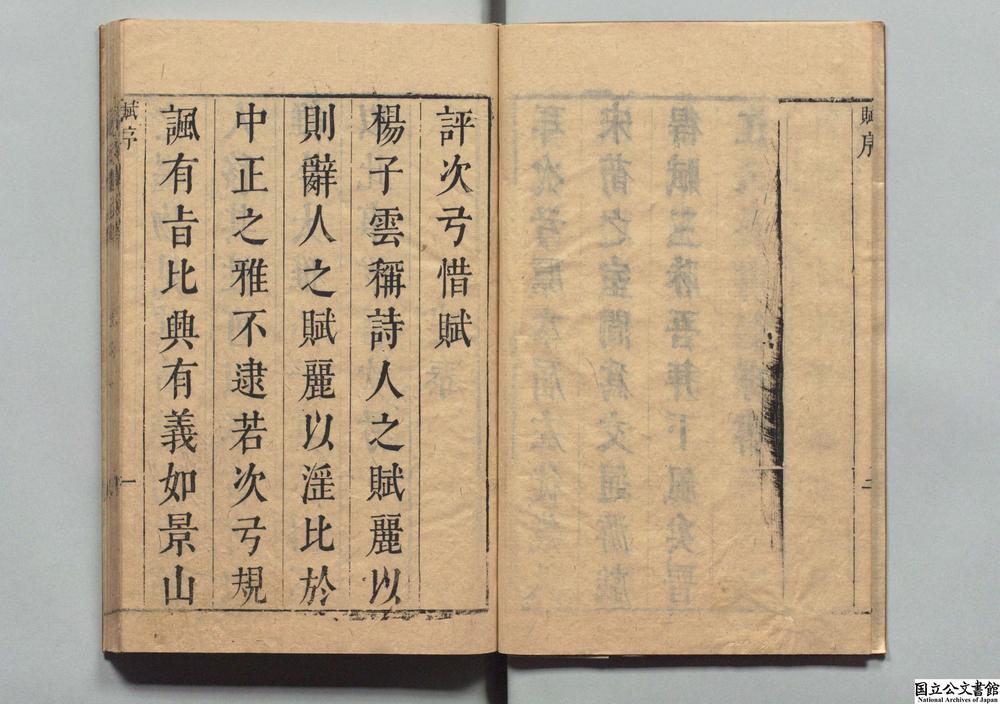 賦序
二
評次弓惜賦
楊子雲稱詩人之賦麗以
則辭人之賦麗以淫比於
中正之雅不逮若次弓規
諷有旨比興有義如景山
賦序
一
国立公文書館
National Archives of Japan